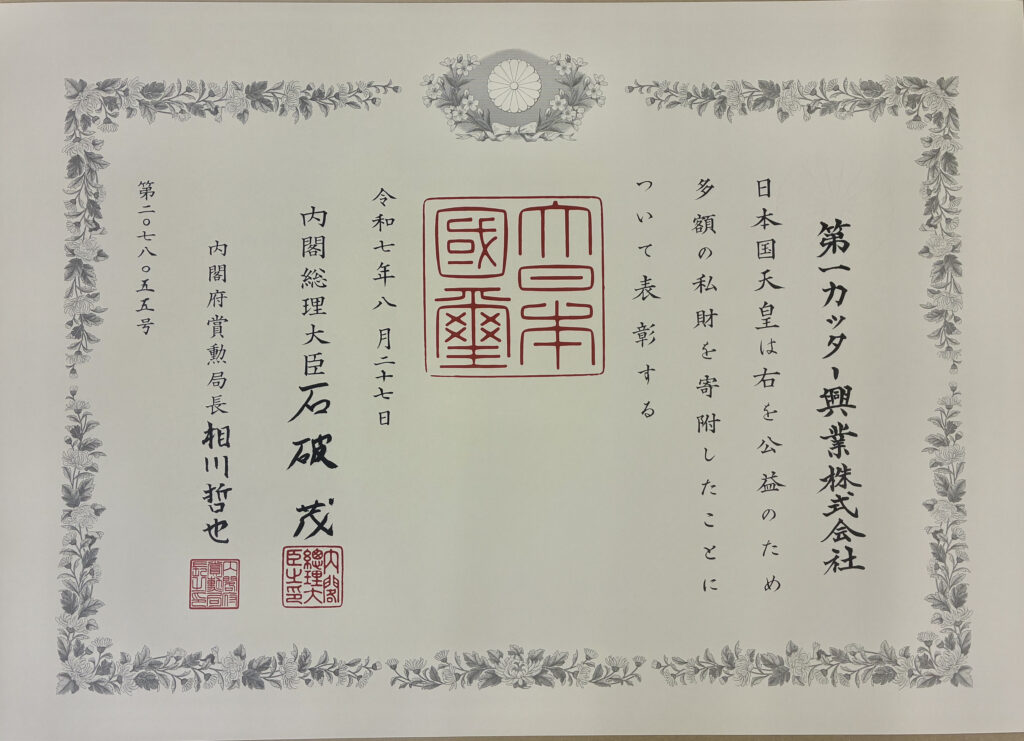 第一カッター興業株式会社
日本国天皇は右を公益のため
多額の私財を寄附したことに
ついて表彰する
大日本國璽
令和七年八月二十七日
内閣総理大臣石破茂
内閣總理大臣之印
内閣府賞勲局長相川哲也
内閣府賞勲局長之印
第二〇七八〇五五号